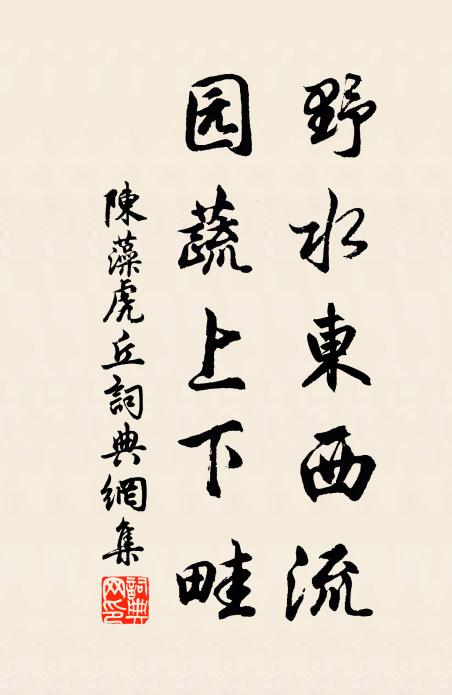 野水東西流
园蔬上下畦
陳藻虎丘詞典網集
詞典网印